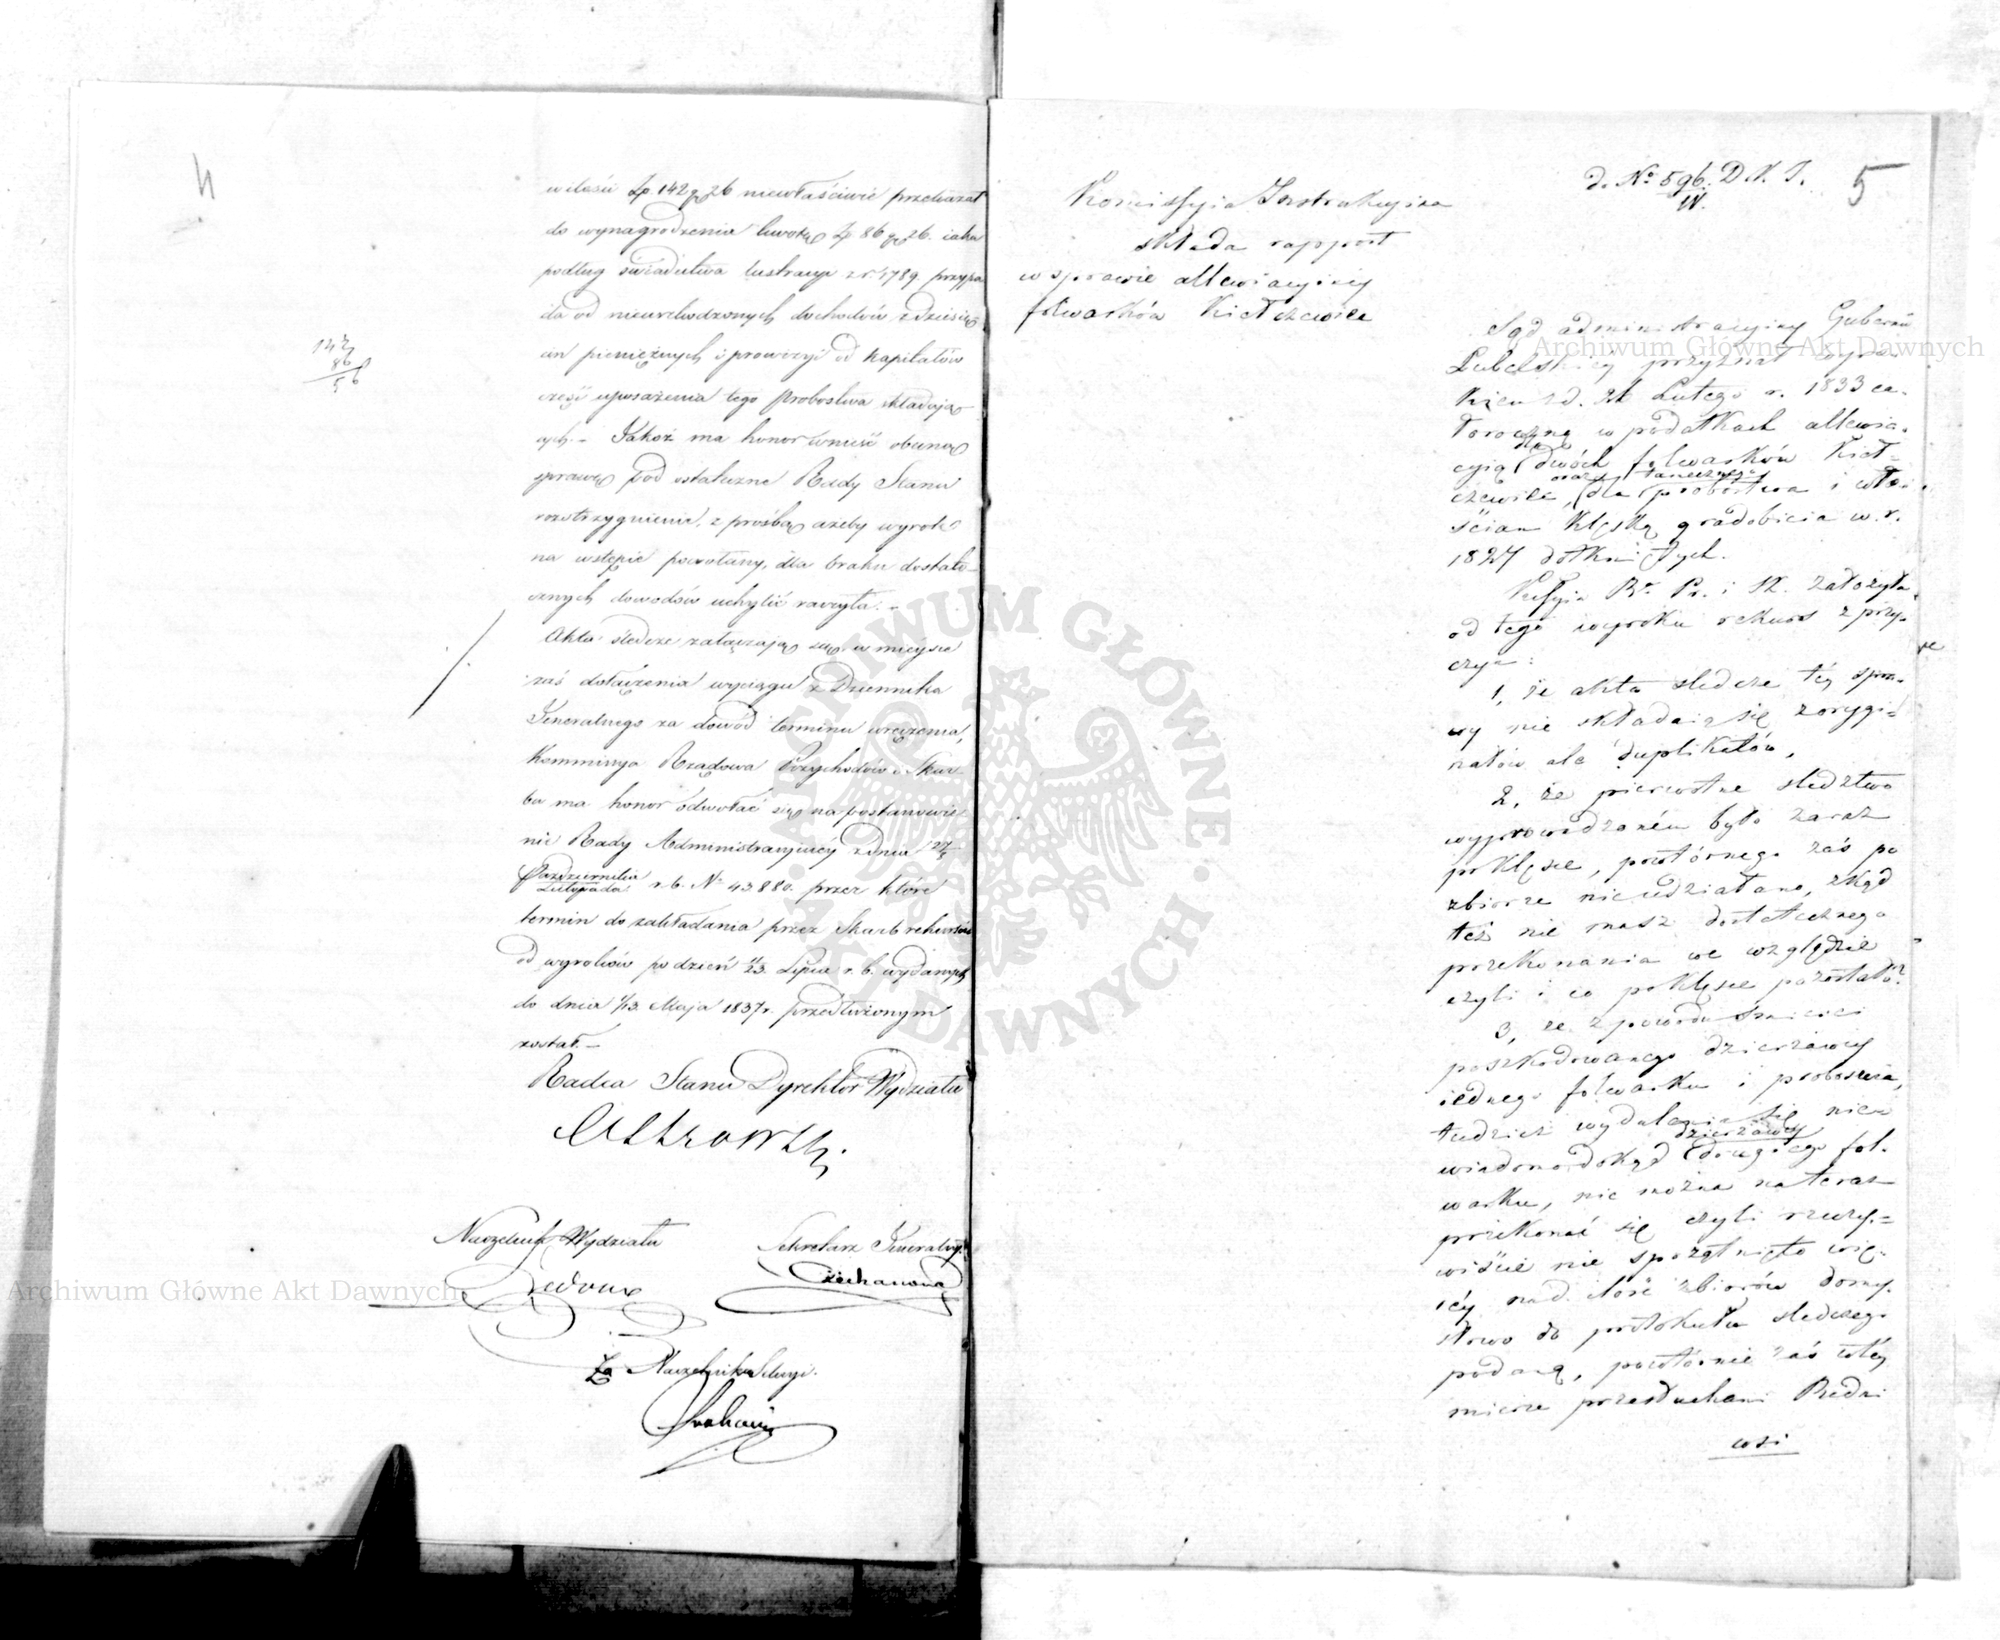 4
w ilości Zp. 142 gr 26 niewłaściwie przekazał
do wynagrodzenia kwotę Zp 86 gr 26. jaka
podług świadectwa lustracyi z r. 1789. przypa
da od nieuszkodzonych dochodów z dziesię
cin pieniężnych i prowizyi od kapitałów
część uposażenia tego Probostwa składają
cych. - Jakoż ma honor wnieść obecną
sprawę pod ostateczne Rady Stanu
rozstrzygnienie, z prośbą ażeby wyrok
na wstępie powołany, dla braku dostate
cznych dowodów uchylić raczyła. -
Akta śledcze załączają się, w miejsce
zaś dołączenia wyciągu z Dziennika
Generalnego za dowód terminu wręczenia,
Kommissya Rządowa Przychodów i Skar
bu ma honor odwołać się na postanowie
nie Rady Administracyjnéy z dnia 27/
Października
Listopada r. b. Nr 43880. przez które
termin do zakładania przez Skarb rekursów
od wyroków po dzień 11/23. Lipca r. b. wydanych
do dnia 1/13. Maja 1837 r. przedłużonym
został. -
142
86
56
Radca Stanu Dyrektor Wydziału
Naczelnik Wydziału
Sekretarz Generalny
Za Naczelnika Sekcyi.
d. No 596. D. K. I.
IV.
5
Kommissyia Instrukcyina
składa rapport
w sprawie allewiacyiney
folwarków Kiełczewice
Sąd administracyiny Gubernii
Lubelskiey przyznał wyro-
kiem z d. 21 Lutego r. 1833 ca-
łoroczną w podatkach allewia-
cyią dla dwóch folwarków Kieł-
czewice, oraz dla tamecznego probostwa i włoś-
ścian klęską gradobicia w r.
1827 dotkniętych.
Kessyia Rz. Pr. i Sk. założyła
od tego wyroku rekurs z przy-
czyn:
1, że akta śledcze téy spra-
wy nie składaią się z orygi-
nałów ale duplikatów,
2, że pierwotne śledztwo
wyprowadzoném było zaraz
po klęsce, powtórnego zaś po
zbiorze nieudziałano, zkąd
też nie masz dostatecznego
przekonania we względzie
czyli i co po klęsce pozostało?
3, że z powodu śmierci
poszkodowanego dzierżawcy
iednego folwarku i proboszcza,
tudzież wydalenia się nie-
wiadomo dokąd dzierżawcy drugiego fol-
warku, nie można nateraz
przekonać się czyli rzeczy-
wiście nie sprzątnięto wię-
céy nad ilość zbiorów domy-
słowo do protokułu śledczego
podaną, powtórnie zaś w téy
mierze przesłuchani Radni
wsi
Archiwum Główne Akt Dawnych
Archiwum Główne Akt Dawnych
ARCHIWUM GŁÓWNE AKT DAWNYCH